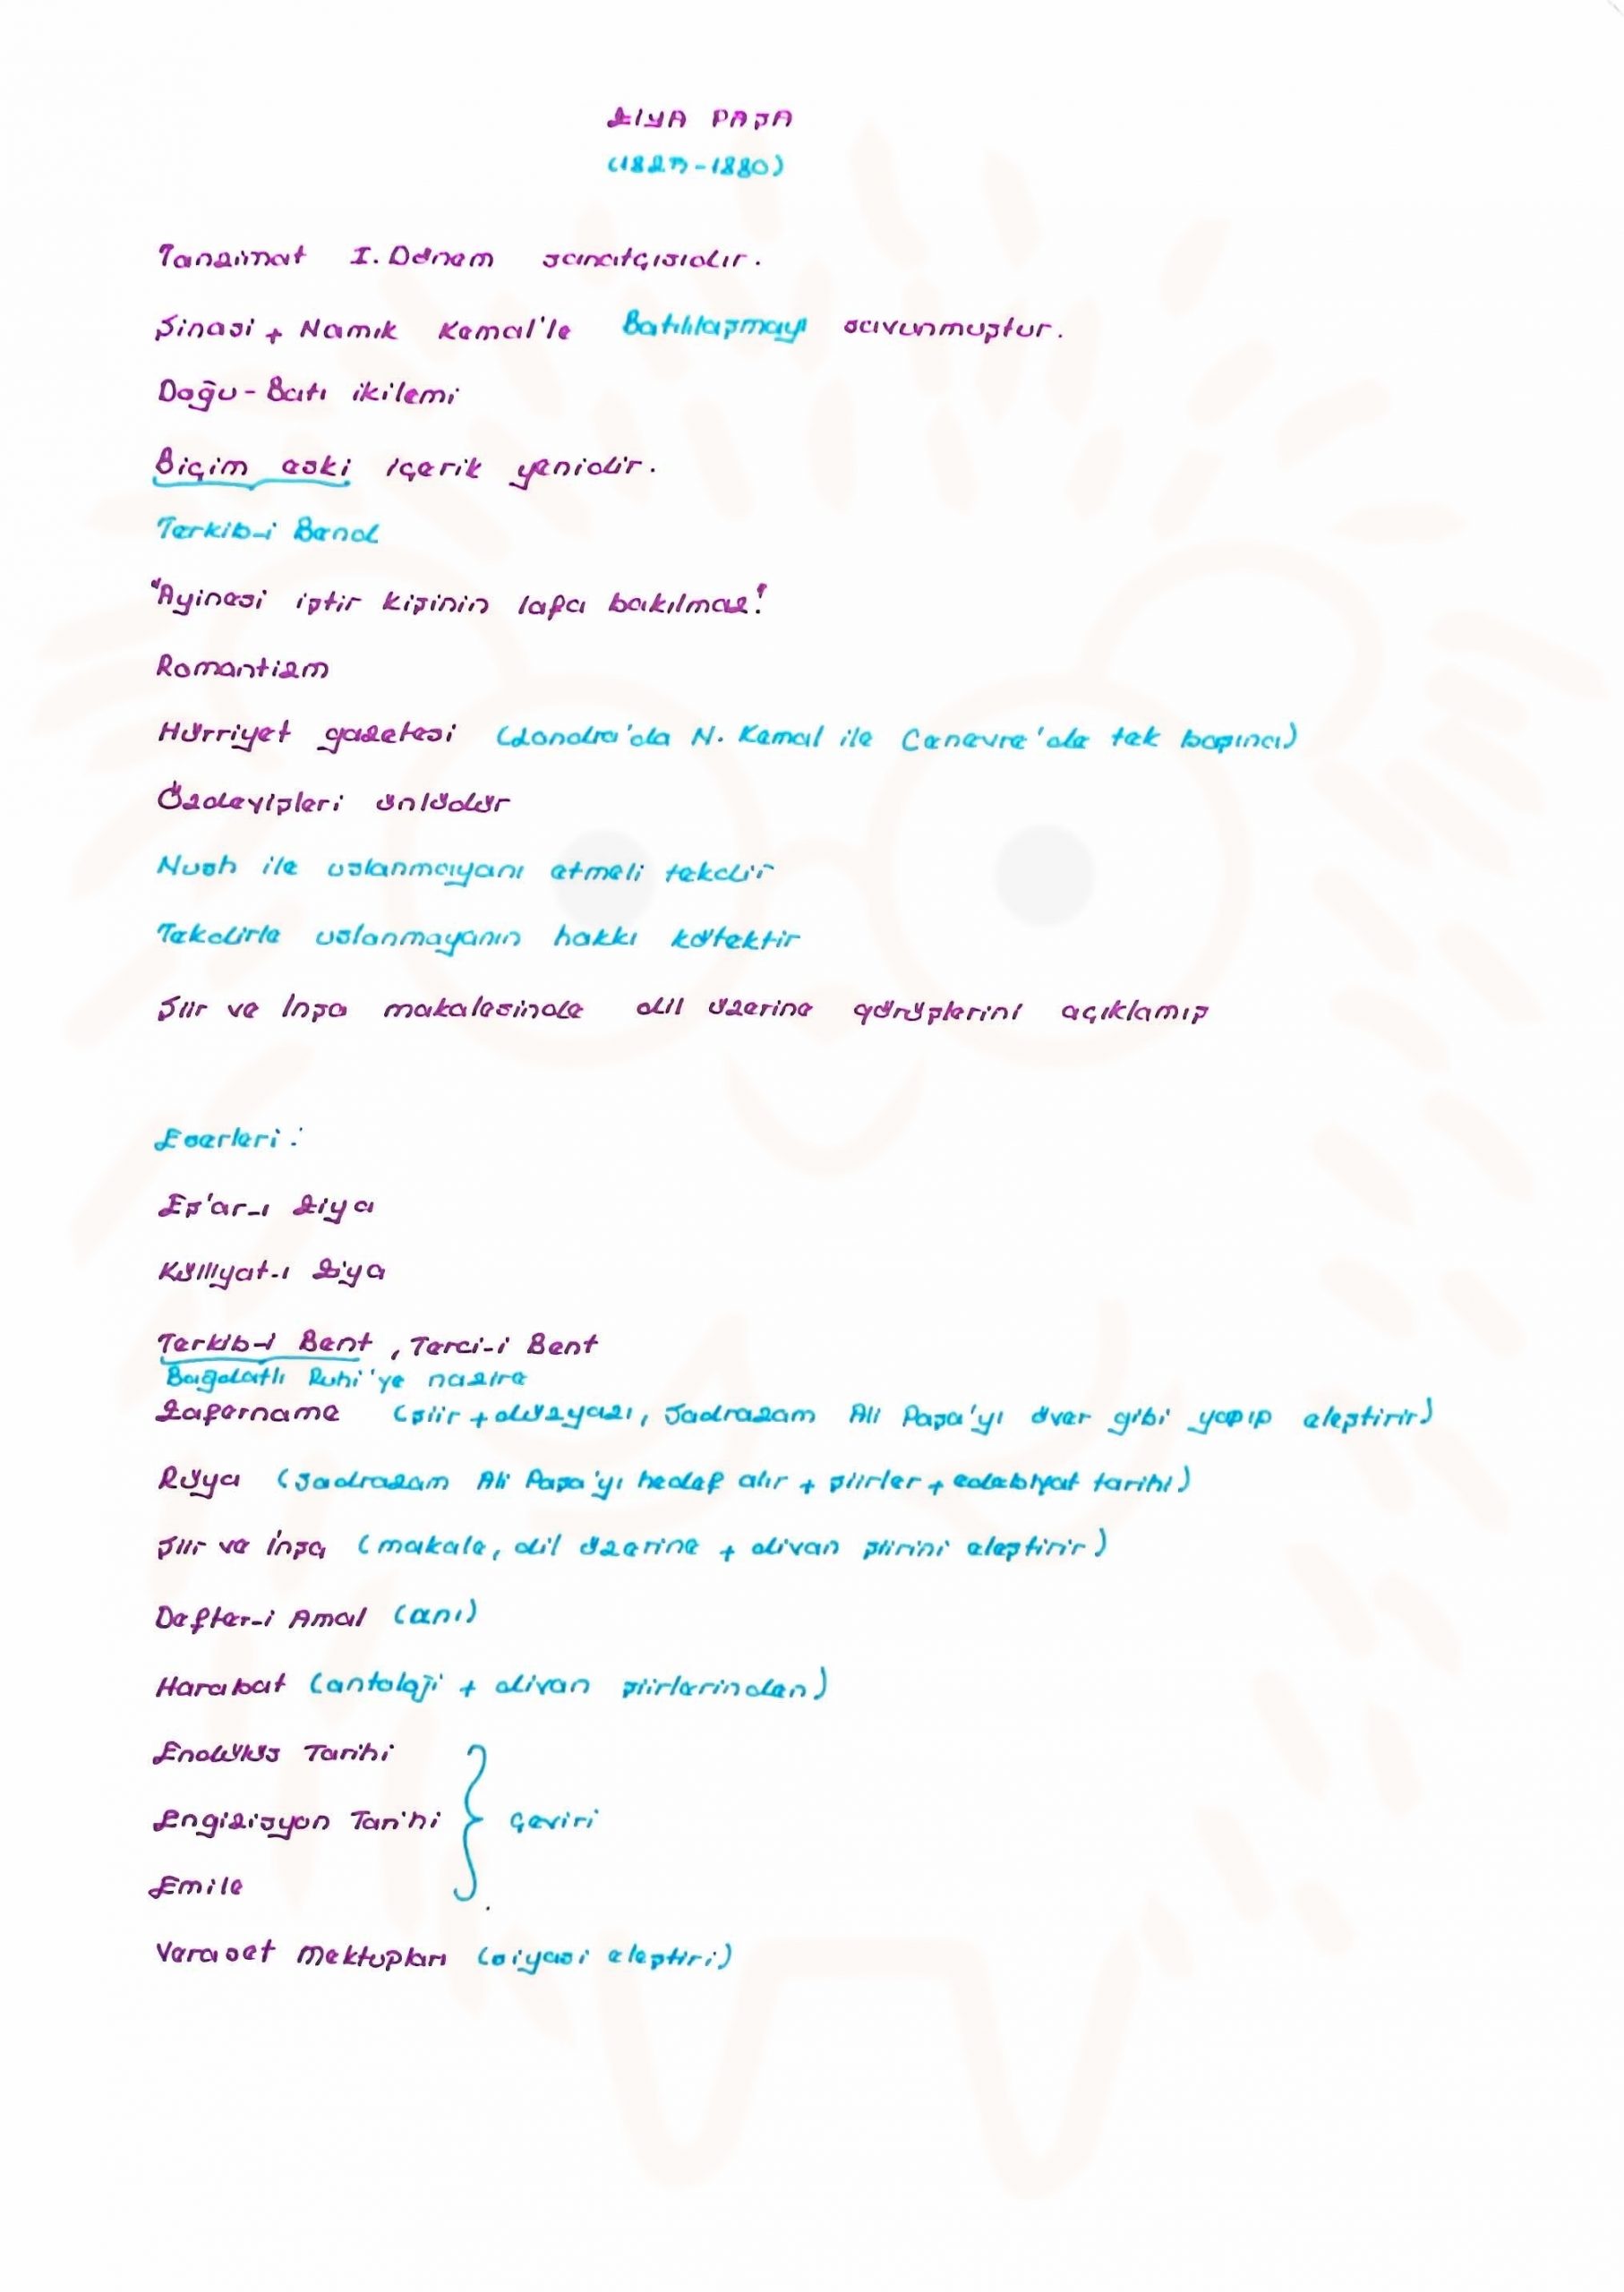 ZİYA PAŞA
(1829-1880)
Tanzimat I. Dönem sanatçısıdır.
Şinasi + Namık Kemal'le Batılılaşmayı savunmuştur.
Doğu-Batı ikilemi
Biçim eski içerik yenidir.
Terkib-i Bend
"Ayinesi iştir kişinin lafa bakılmaz!
Romantizm
Hürriyet gazetesi (Londra'da N. Kemal ile Cenevre'de tek başına)
Özdeyişleri ünlüdür
Nush ile uslanmayanı etmeli tekdir
Tekdirle uslanmayanın hakkı kötektir
Şiir ve İnşa makalesinde dil üzerine görüşlerini açıklamış
Eserleri:
Eş'ar-ı Ziya
Külliyat-ı Ziya
Terkib-i Bent, Terci-i Bent
Bağdatlı Ruhi'ye nazire
Zafername (şiir + düzyazı, Sadrazam Ali Paşa'yı över gibi yapıp eleştirir)
Rüya (Sadrazam Ali Paşa'yı hedef alır + şiirler + edebiyat tarihi)
Şiir ve İnşa (makale, dil üzerine + divan şiirini eleştirir)
Defter-i Amal (anı)
Harabat (antoloji + divan şiirlerinden)
Endülüs Tarihi
Engizisyon Tarihi } Çeviri
Emile
Veraset Mektupları (siyasi eleştiri)